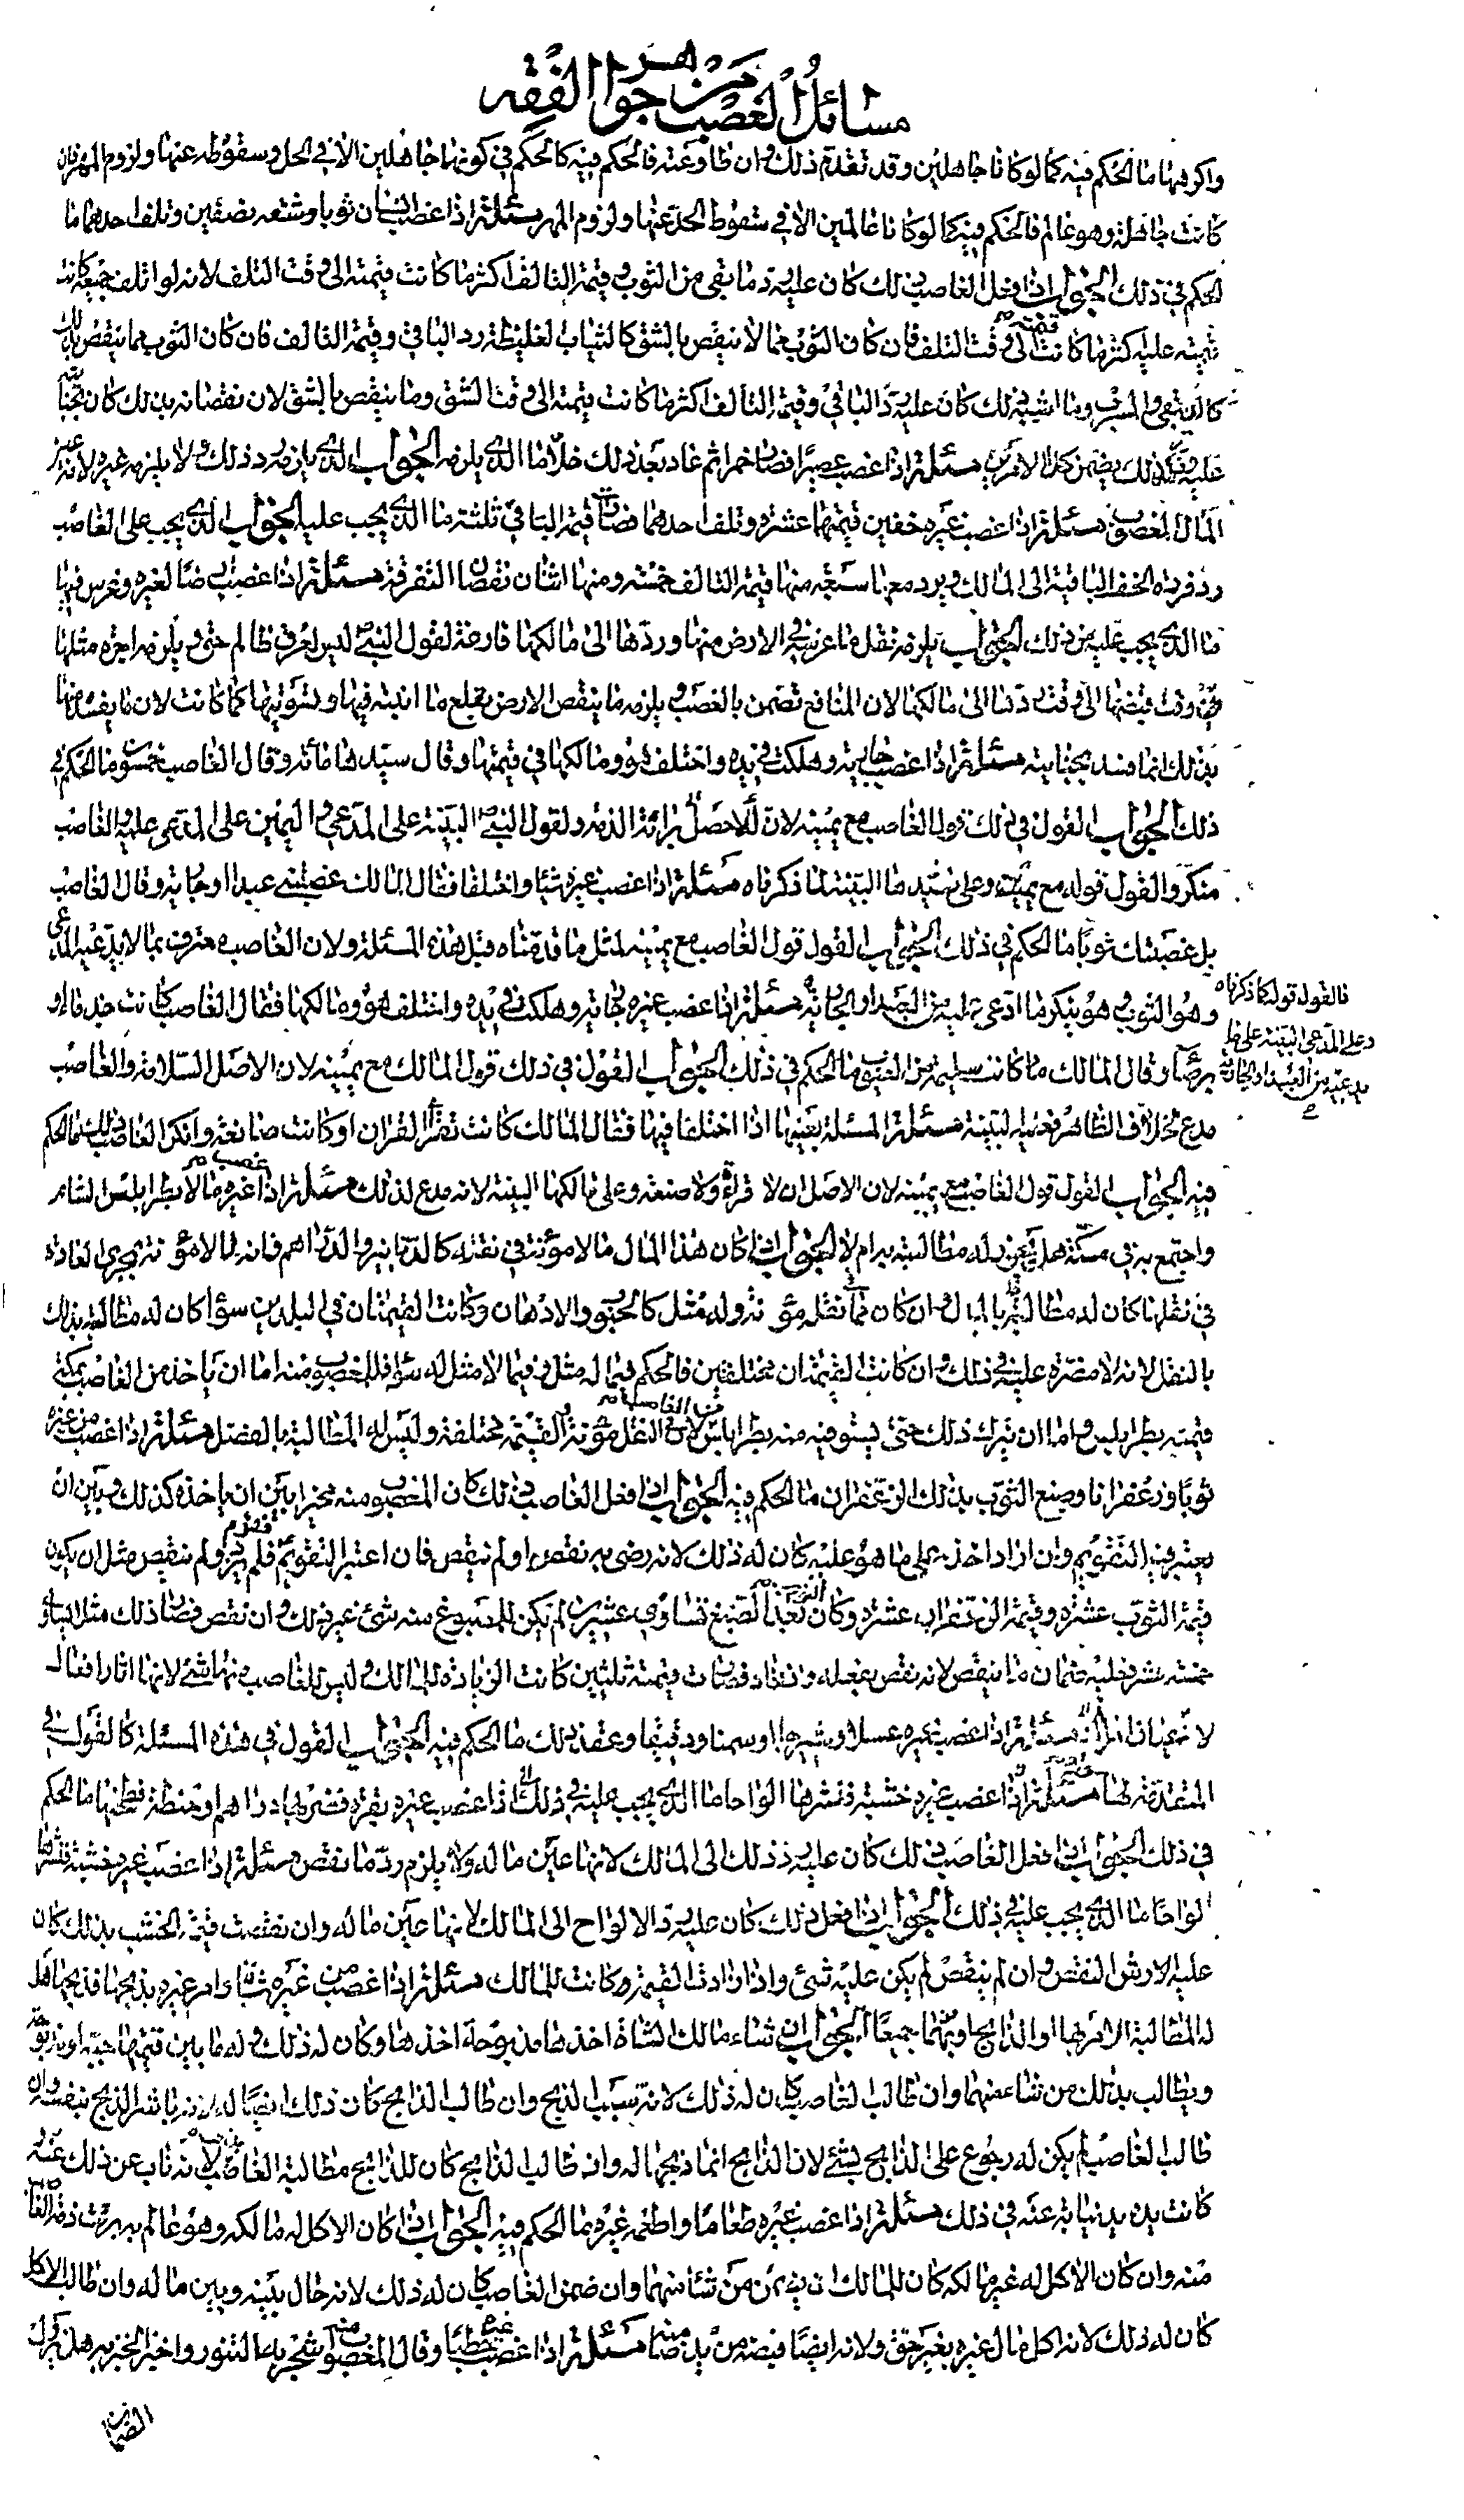 مسائل الغصب من جواهر الفقه
واكرهها ما الحكم فيه كما لو كانا جاهلين وقد تقدم ذلك وان طاوعته فالحكم فيه كالحكم في كونهما جاهلين الا في الحد وسقوطه عنها ولزوم المهر فان
كانت جاهلة وهو عالم فالحكم فيه كما لو كانا عالمين الا في سقوط الحد عنها ولزوم المهر مسئلة اذا غصب انسان ثوبا وشقه نصفين وتلف احدهما ما
الحكم في ذلك الجواب اذا فعل الغاصب ذلك كان عليه رد ما بقي من الثوب وقيمة التالف اكثر ما كانت قيمته الى وقت التلف لانه لو اتلف جميعه كانت
قيمته عليه اكثر ما كانت قيمته الى وقت التلف فان كان الثوب مما لا ينقص بالشق كالثياب الغليظة رد الباقي وقيمة التالف فان كان الثوب مما ينقص بذلك
كالدبيقي والشرب وما اشبه ذلك كان عليه رد الباقي وقيمة التالف اكثر ما كانت قيمته الى وقت الشق وما ينقص بالشق لان نقصانه بذلك كان بجنايته
عليه فكذلك يضمن كلا الامرين مسئلة اذا غصب عصيرا فصار خمرا ثم عاد بعد ذلك خلا ما الذي يلزمه الجواب الذي يلزمه رد ذلك ولا يلزمه غيره لانه عين
المال المغصوب مسئلة اذا غصب غيره خفين قيمتهما عشرة وتلف احدهما فصارت قيمة الباقي ثلثة ما الذي يجب عليه الجواب الذي يجب على الغاصب
رد فردة الخف الباقية الى المالك ويرد معها سبعة منها قيمة التالف خمسة ومنها اثنان نقصان التفرقة مسئلة اذا غصب ارضا لغيره وغرس فيها
ما الذي يجب عليه من ذلك الجواب يلزمه نقل ما غرسه في الارض منها وردها الى مالكها فارغة لقول النبي ص ليس لعرق ظالم حق ويلزمه اجرة مثلها
من وقت قبضها الى وقت ردها الى مالكها لان المنافع تضمن بالغصب ويلزمه ما ينقص الارض بقلع ما انبته فيها وتسويتها كما كانت لان ما يفسد منها
بذلك انما فسد بجنايته مسئلة اذا غصب جارية وهلكت في يده واختلف هو ومالكها في قيمتها وقال سيدها مائة وقال الغاصب خمسون ما الحكم في
ذلك الجواب القول في ذلك قول الغاصب مع يمينه لان الاصل برائة الذمة ولقول النبي ص البينة على المدعي واليمين على المدعى عليه والغاصب
منكر والقول قوله مع يمينه وعلى سيدها البينة لما ذكرناه مسئلة اذا غصب غيره شيئا واختلفا فقال المالك غصبتني عبدا او جارية وقال الغاصب
بل غصبتك ثوبا ما الحكم في ذلك الجواب القول قول الغاصب مع يمينه لمثل ما قدمناه قبل هذه المسئلة ولان الغاصب معترف بما لا يدعيه المدعي
وهو الثوب وهو ينكر ما ادعي عليه من العبد او الجارية مسئلة اذا غصب غيره جارية وهلكت في يده واختلف هو ومالكها فقال الغاصب كانت جذماء او
فالقول قوله كما ذكرناه
وعلى المدعي البينة على ما
يدعيه من العبد او الجارية
برصاء وقال المالك ما كانت سليمة من العيوب ما الحكم في ذلك الجواب القول في ذلك قول المالك مع يمينه لان الاصل السلامة والغاصب
مدع خلاف الظاهر فعليه البينة مسئلة المسئلة بعينها اذا اختلفا فيها فقال المالك كانت تقرأ القران او كانت صانعة وانكر الغاصب ذلك ما الحكم
فيه الجواب القول قول الغاصب مع يمينه لان الاصل ان لا قراءة ولا صنعة وعلى مالكها البينة لانه مدع لذلك مسئلة اذا غصب غيره مالا بطرابلس الشام
واجتمع به في مكة هل يجوز له مطالبته به ام لا الجواب اذا كان هذا المال مما لا مؤنة في نقله كالدنانير والدراهم فانه لا مؤنة تجري العادة
في نقلها كان له مطالبته بالمال وان كان مما في نقله مؤنة وله مثل كالحبوب والادهان وكانت القيمتان في البلدين سواء كان له مطالبته بذلك
بالنقل لانه لا مضرة عليه في ذلك وان كانت القيمتان مختلفتين فالحكم فيما له مثل وفيما لا مثل له سواء فللمغصوب منه اما ان ياخذ من الغاصب بمكة
قيمته بطرابلس واما ان يترك ذلك حتى يستوفيه من الغاصب بطرابلس لان في النقل مؤنة والقيمة مختلفة وليس له المطالبة بالفضل مسئلة اذا غصب من غيره
ثوبا وزعفرانا وصبغ الثوب بذلك الزعفران ما الحكم فيه الجواب اذا فعل الغاصب ذلك كان المغصوب منه مخيرا بين ان ياخذه كذلك وبين ان
يعتبر فيه التقويم وان اراد اخذه على ما هو عليه كان له ذلك لانه رضي به نقص او لم ينقص فان اعتبر التقويم فلم يزد ولم ينقص مثل ان يكون
قيمة الثوب عشرة وقيمة الزعفران عشرة وكان الثوب بعد الصبغ تساوي عشرين لم يكن للمغصوب منه شئ غير ذلك وان نقص فصار ذلك مثلا يساوي
خمسة عشر فعليه ضمان ما ينقص لانه نقص بفعله وان زاد فصارت قيمته ثلثين كانت الزيادة للمالك وليس للغاصب منها شئ لانها اثار افعال
لا اعيان اموال مسئلة اذا غصب غيره عسلا وشيرجا او سمنا ودقيقا وعقد ذلك ما الحكم فيه الجواب القول في هذه المسئلة كالقول في
المتقدمة لها مسئلة اذا غصب غيره خشبة فنشرها الواحا ما الذي يجب عليه في ذلك اذا غصب غيره نقرة فضربها دراهم او حنطة فطحنها ما الحكم
في ذلك الجواب اذا فعل الغاصب ذلك كان عليه رد ذلك الى المالك لانها عين ماله ولا يلزم رد ما نقص مسئلة اذا غصب غيره خشبة فنشرها
الواحا ما الذي يجب عليه في ذلك الجواب اذا فعل ذلك كان عليه رد الالواح الى المالك لانها عين ماله وان نقصت قيمة الخشب بذلك كان
عليه الارش النقص وان لم ينقص لم يكن عليه شئ واذا زادت القيمة كانت للمالك مسئلة اذا غصب من غيره شاة وامر غيره بذبحها فذبحها هل
له المطالبة الامر بها او الذابح او هما جميعا الجواب ان شاء مالك الشاة اخذها مذبوحة اخذها وكان له ذلك وله ما بين قيمتها حية ومذبوحة
ويطالب بذلك من شاء منهما وان طالب الغاصب كان له ذلك لانه سبب الذبح وان طالب الذابح كان ذلك ايضا له لانه باشر الذبح بنفسه وان
طالب الغاصب لم يكن له رجوع على الذابح بشئ لان الذابح انما ذبحها له وان طالب الذابح كان للذابح مطالبة الغاصب لانه ناب عن ذلك عنه
كانت يده يد نيابة عنه في ذلك مسئلة اذا غصب غيره طعاما واطعمه غيره ما الحكم فيه الجواب اذا كان الاكل له مالكه وهو عالم به برئت ذمة الغاصب
منه وان كان الاكل له غير مالكه كان للمالك ان يضمن من شاء منهما وان ضمن الغاصب كان له ذلك لانه حال بينه وبين ماله وان طالب الاكل
كان له ذلك لانه اكل مال غيره بغير حق ولانه ايضا قبضه من يد ضامنة مسئلة اذا غصب غيره حطبا وقال المغصوب منه اسجر به التنور واخبز الخبز به هل يزول
الضمان